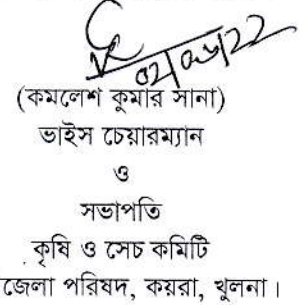 ০২/০৬/২২
(কমলেশ কুমার সানা)
ভাইস চেয়ারম্যান
ও
সভাপতি
কৃষি ও সেচ কমিটি
জেলা পরিষদ, কয়রা, খুলনা।